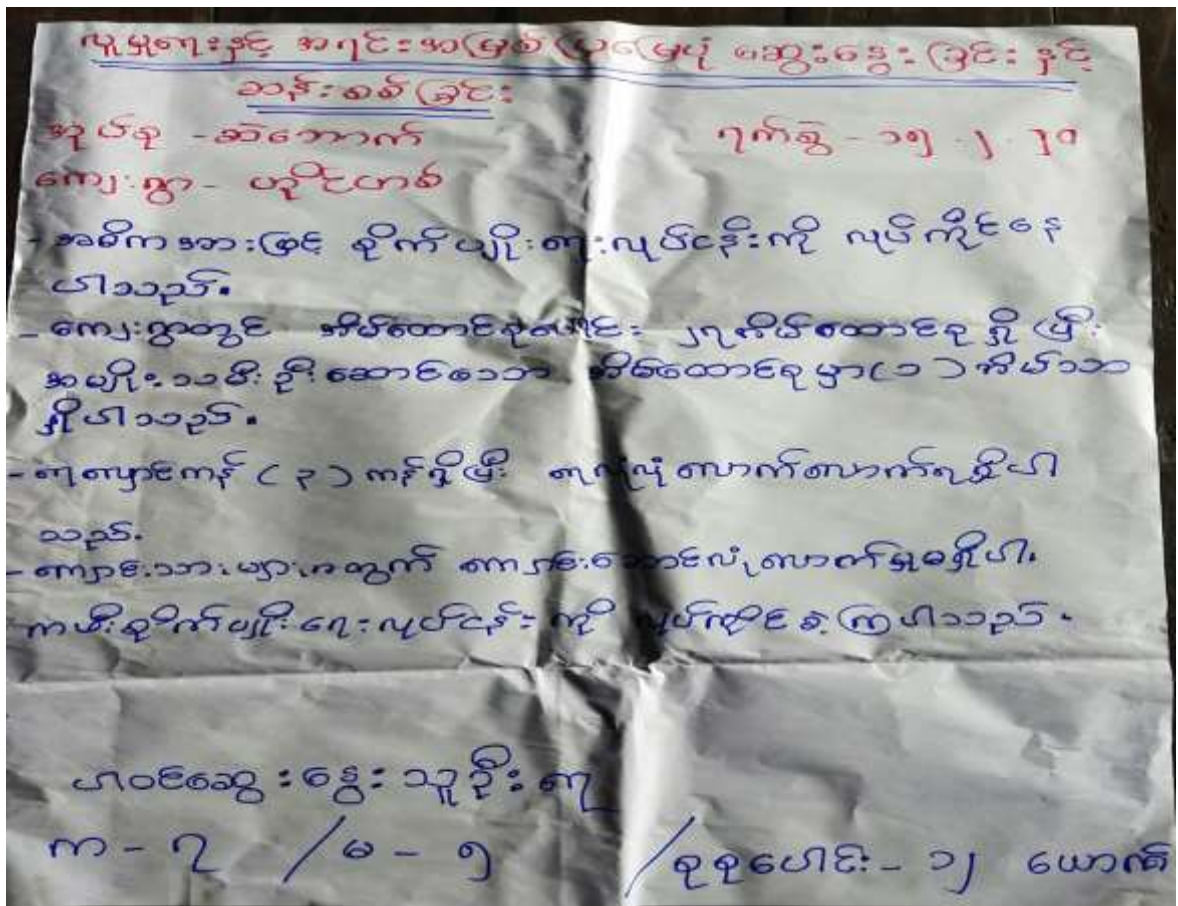 လူမှုရေးနှင့် အရင်းအမြစ်ပြမြေပုံ ဆွေးနွေးခြင်းနှင့်
ဆန်းစစ်ခြင်း
အုပ်စု - ဆဲဘောက်
ရက်စွဲ - ၁၅.၂.၂၀
ကျေးရွာ - ဟုိင်ဟစ်
- အဓိကအားဖြင့် စိုက်ပျိုးရေးလုပ်ငန်းကို လုပ်ကိုင်နေ
ပါသည်။
- ကျေးရွာတွင် အိမ်ထောင်စုပေါင်း ၂၇အိမ်ထောင်စုရှိပြီး
အမျိုးသမီးဦးဆောင်သော အိမ်ထောင်စုမှာ (၁) အိမ်သာ
ရှိပါသည်။
- ရေလှောင်ကန် (၃) ကန်ရှိပြီး ရေလုံလုံလောက်လောက်ရရှိပါ
သည်။
- ကျောင်းသားများအတွက် ကျောင်းဆောင်လုံလောက်မှုမရှိပါ။
ကော်ဖီစိုက်ပျိုးရေးလုပ်ငန်းကို လုပ်ကိုင်ခဲ့ကြပါသည်။
ပါဝင်ဆွေးနွေးသူဦးရေ
က - ၇ / မ - ၅ / စုစုပေါင်း - ၁၂ ယောက်